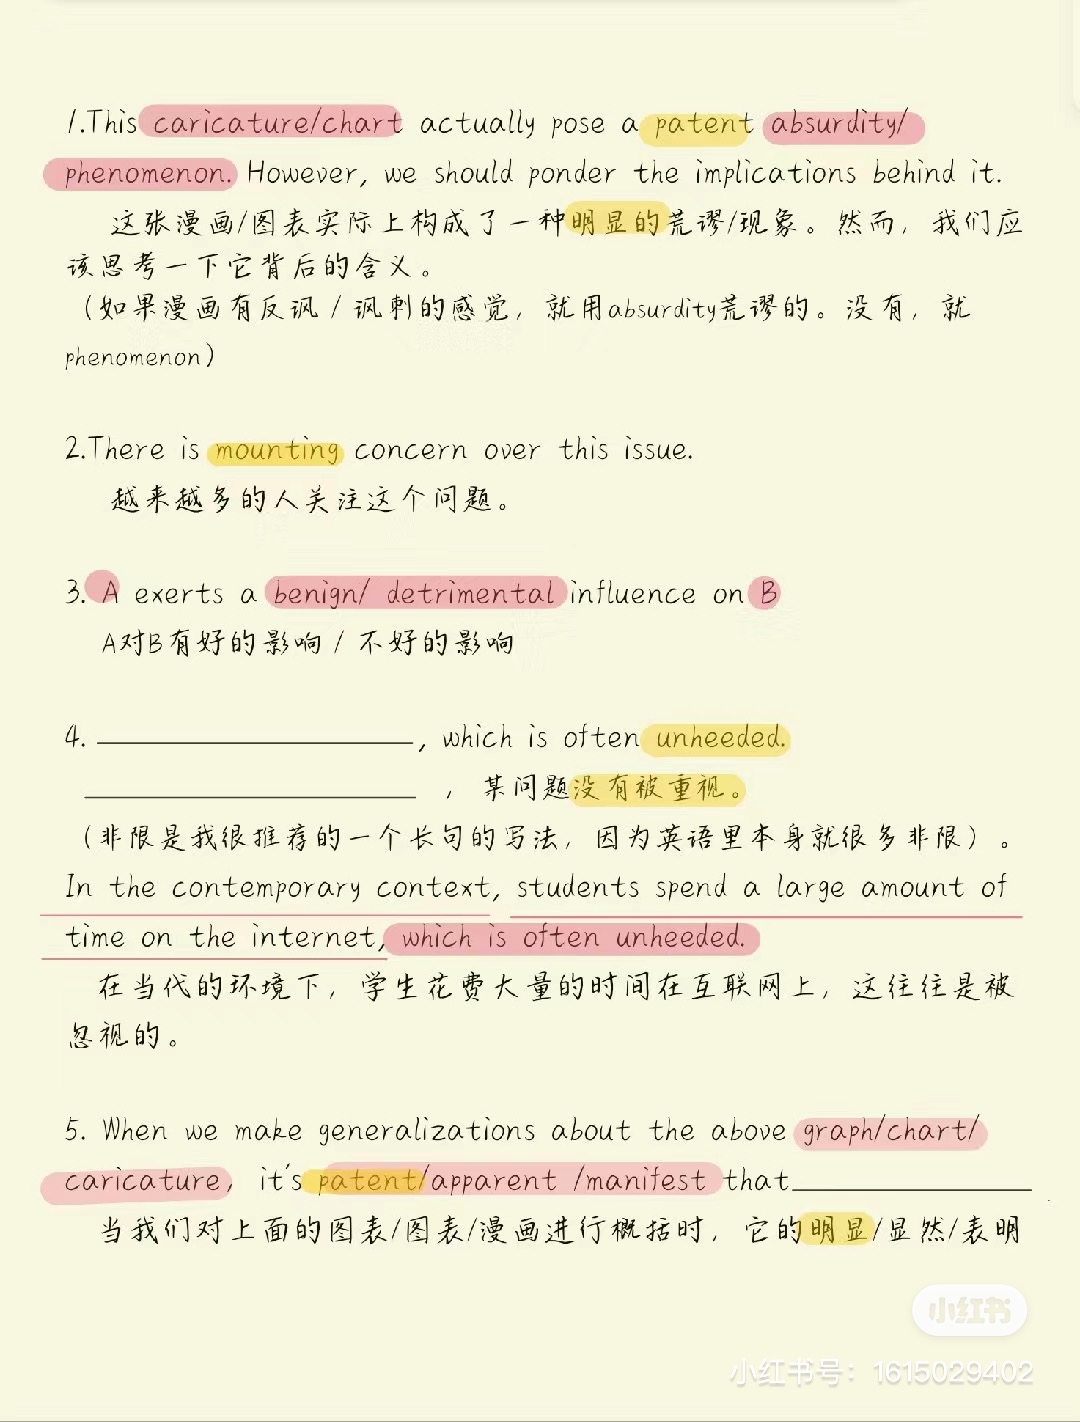 1.This caricature/chart actually pose a patent absurdity/
phenomenon. However, we should ponder the implications behind it.
这张漫画/图表实际上构成了一种明显的荒谬/现象。然而，我们应
该思考一下它背后的含义。
（如果漫画有反讽/讽刺的感觉，就用absurdity荒谬的。没有，就
phenomenon）
2.There is mounting concern over this issue.
越来越多的人关注这个问题。
3. A exerts a benign/ detrimental influence on B
A对B有好的影响/不好的影响
4. ____________, which is often unheeded.
____________，某问题没有被重视。
（非限是我很推荐的一个长句的写法，因为英语里本身就很多非限）。
In the contemporary context, students spend a large amount of
time on the internet, which is often unheeded.
在当代的环境下，学生花费大量的时间在互联网上，这往往是被
忽视的。
5. When we make generalizations about the above graph/chart/
caricature, it's patent/apparent /manifest that____________
当我们对上面的图表/图表/漫画进行概括时，它的明显/显然/表明
小红书
小红书号：1615029402